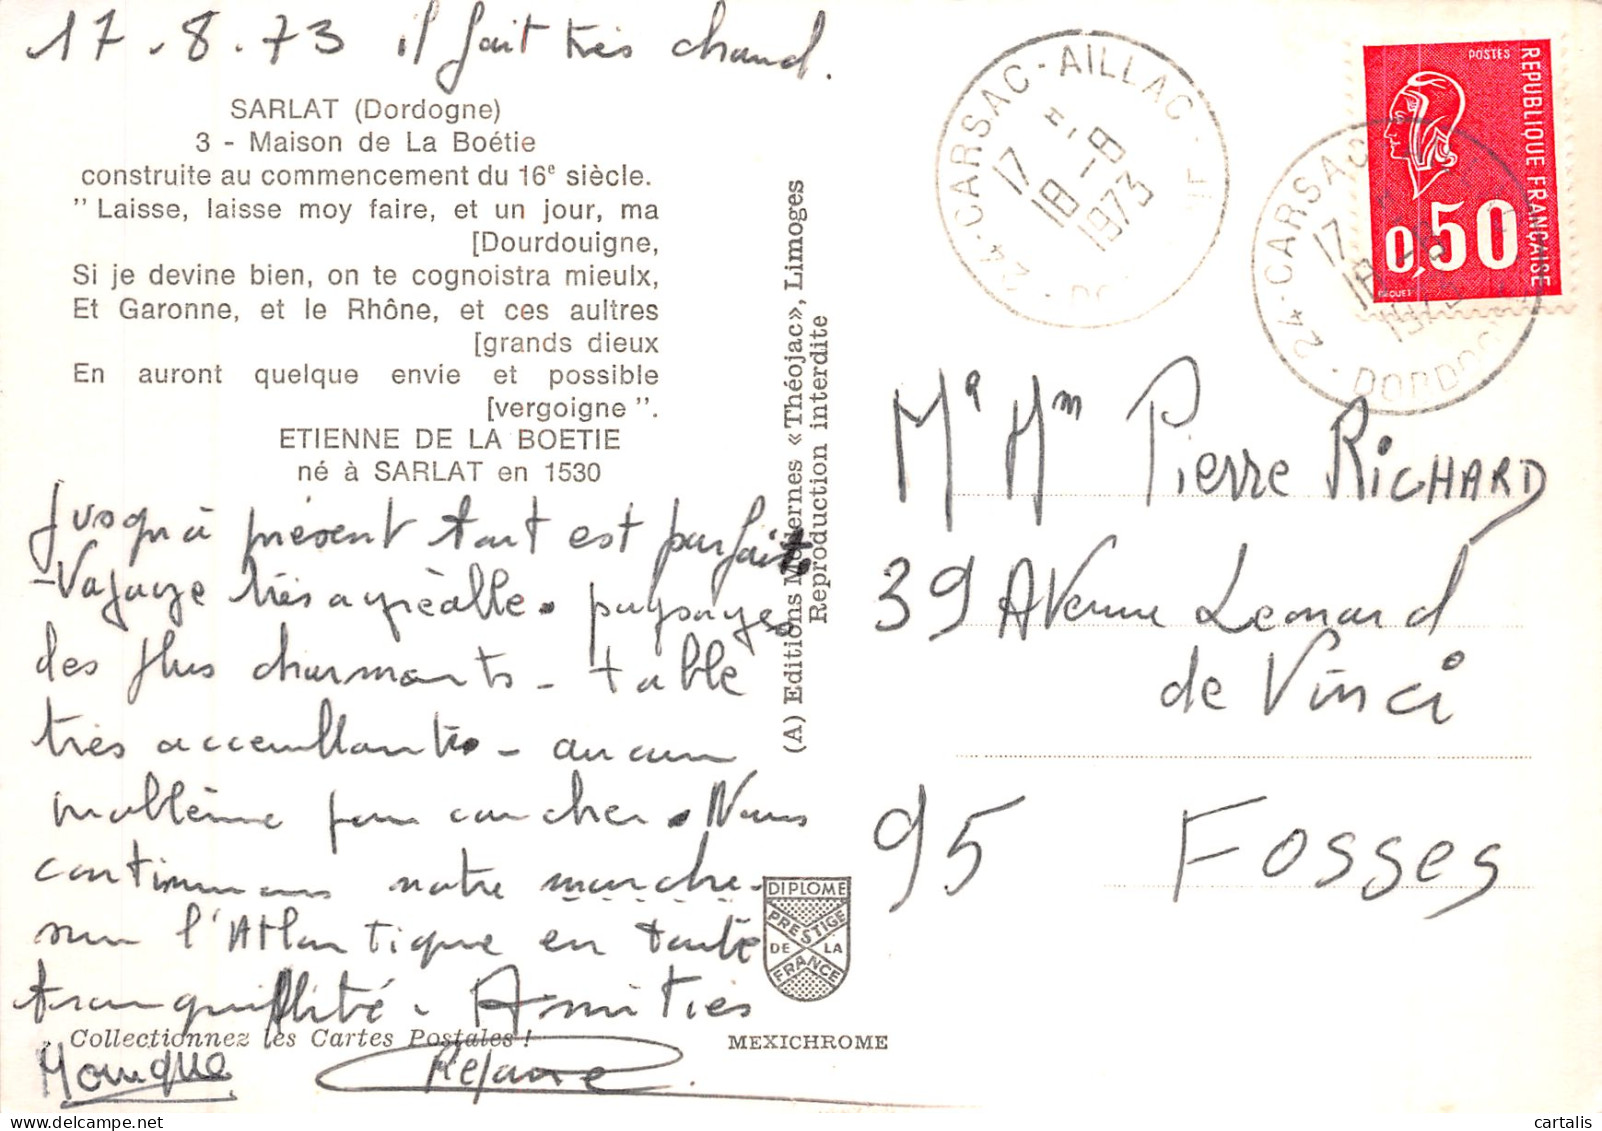 17.8.73 il fait très chaud.
SARLAT (Dordogne)
3 - Maison de La Boétie
construite au commencement du 16e siècle.
" Laisse, laisse moy faire, et un jour, ma
[Dourdouigne,
Si je devine bien, on te cognoistra mieulx,
Et Garonne, et le Rhône, et ces aultres
[grands dieux
En auront quelque envie et possible
[vergoigne ".
ETIENNE DE LA BOETIE
né à SARLAT en 1530
Jusqu'à présent tout est parfait
- Voyage très agréable. paysages
des plus charmants - table
très accueillante - aucun
problème pour coucher. Nous
continuons notre marche
sur l'Atlantique en toute
tranquillité. Amitiés
Collectionnez les Cartes Postales !
Monique
(A) Editions Modernes «Théojac», Limoges
Reproduction interdite
DIPLOME
PRESTIGE
DE LA
FRANCE
MEXICHROME
24-CARSAC-AILLAC
17
18-8
1973
POSTES
REPUBLIQUE FRANÇAISE
0,50
24-CARSAC
17
18
1973
DORDOGNE
Mr Mm Pierre RICHARD
39 Avenue Leonard
de Vinci
95 Fosses
cartalis